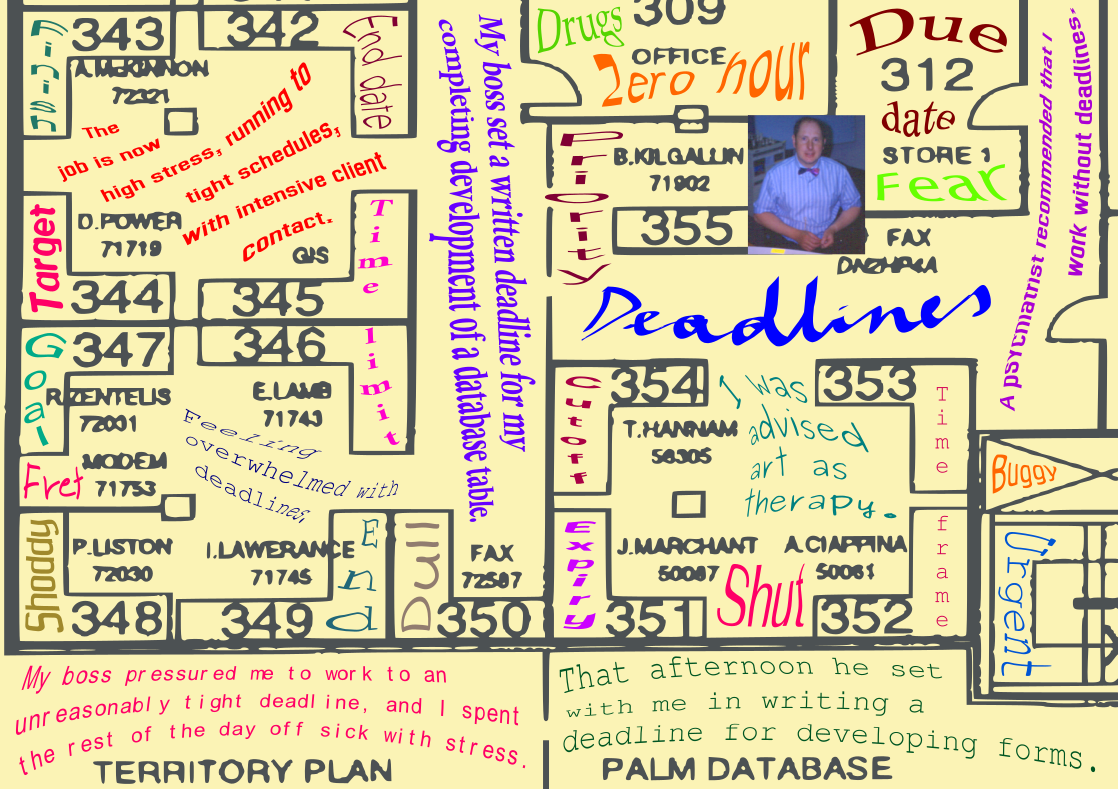 343
342
End date
A.McKINNON
72321
The
job is now
high stress, running to
tight schedules,
with intensive client
contact.
Target
D.POWER
71719
GIS
Time
limit
344
345
347
346
Goal
R.ZENTELIS
72031
E.LAMB
71743
MODEM
71753
Fret
Feeling
overwhelmed with
deadlines,
Shoddy
P.LISTON
72030
I.LAWERANCE
71745
End
348
349
Dull
FAX
72587
350
My boss set a written deadline for my
completing development of a database table.
Drugs
309
OFFICE
Zero hour
Due
312
date
STORE 1
Fear
Priority
B.KILGALLIN
71902
355
FAX
Deadlines
A psychiatrist recommended that I
work without deadlines.
354
353
Cutoff
T.HANNAM
58305
I was
advised
art as
therapy.
Time
frame
Buggy
Urgent
Expiry
J.MARCHANT
50087
A.CIAPPINA
50061
Shut
351
352
My boss pressured me to work to an
unreasonably tight deadline, and I spent
the rest of the day off sick with stress.
TERRITORY PLAN
That afternoon he set
with me in writing a
deadline for developing forms.
PALM DATABASE